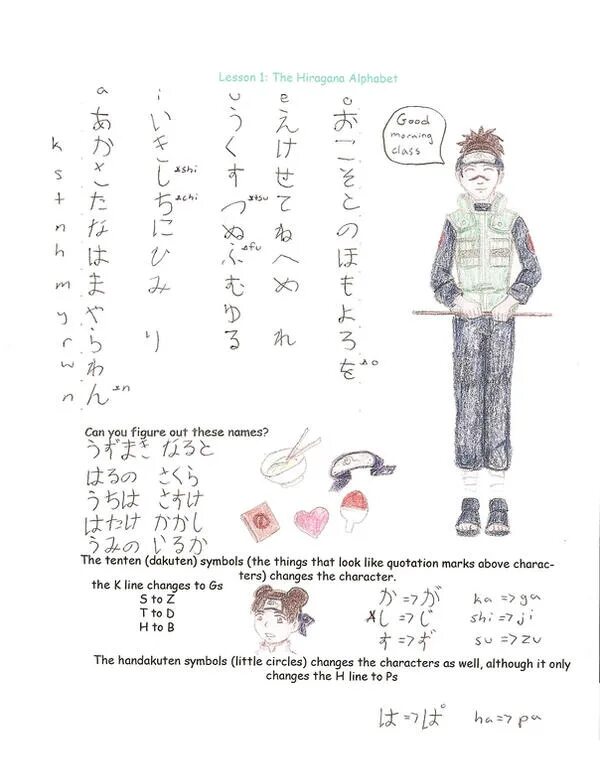 Lesson 1: The Hiragana Alphabet
a i u e o
あ い う え お
k か き く け こ
s さ し*shi す せ そ
t た ち*chi つ*tsu て と
n な に ぬ ね の
h は ひ ふ*fu へ ほ
m ま み む め も
y や ゆ よ
r ら り る れ ろ
w わ を*o
n ん*n
Good
morning
class
Can you figure out these names?
うずまき なると
はるの さくら
うちは さすけ
はたけ かかし
うみの いるか
The tenten (dakuten) symbols (the things that look like quotation marks above charac-
ters) changes the character.
the K line changes to Gs
S to Z
T to D
H to B
か => が ka => ga
*し => じ shi => ji
す => ず su => zu
The handakuten symbols (little circles) changes the characters as well, although it only
changes the H line to Ps
は => ぱ ha => pa